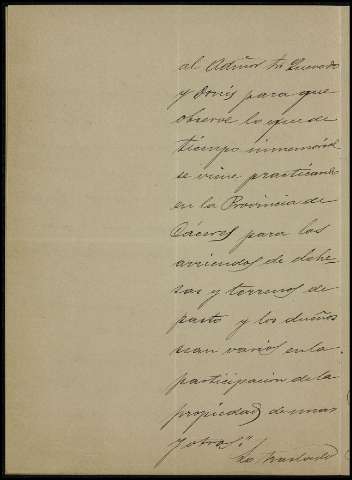 al Admor Sr Quevedo
y Donis para que
observe lo que de
tiempo inmemorial
se viene practicando
en la Provincia de
Cáceres para los
arriendos de dehe-
sas y terrenos de
pasto y los dueños
sean varios en la
participacion de la
propiedad de unas
y otros."
Lo traslado